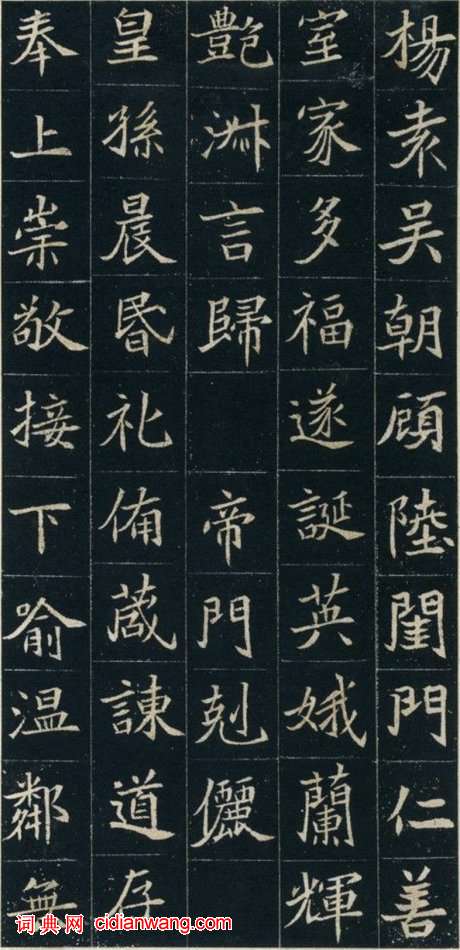 楊袁吴朝頋陸閨門仁善
室家多福遂誕英娥蘭輝
艶淑言歸 帝門剋儷
皇孫晨昬礼俻葴諫道存
奉上崇敬接下喻温鄰無
词典网 cidianwang.com